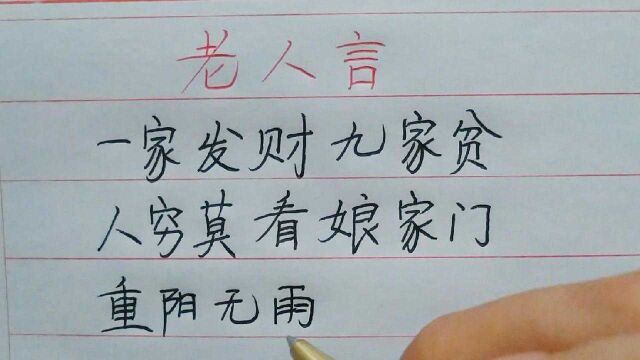 老人言
一家发财九家贫
人穷莫看娘家门
重阳无雨